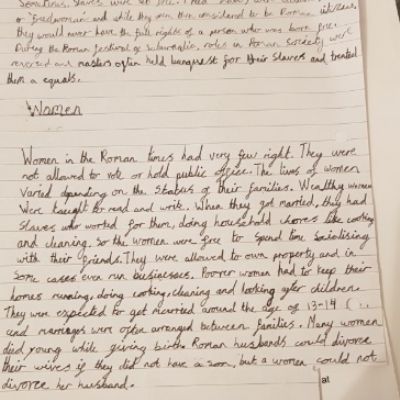 Sometimes, slaves were set free.
or 'freedwoman' and while they were then considered to be Roman citizens,
they would never have the full rights of a person who was born free.
During the Roman festival of Saturnalia, roles in Roman Society were
reversed and masters often held banquest for their slaves and treated
them a equals.
Women
Women in the Roman times had very few right. They were
not allowed to vote or hold public office. The lives of women
varied dpanding on the status of their families. Wealthy women
were taught to read and write. When they got married, they had
slaves who worked for them, doing household chores like cooking
and cleaning. so the women were free to spend time socialising
with their friends. They were allowed to own property and in
some cases even run businesses. Poorer woman had to keep their
homes running, doing cooking, cleaning and looking after children
They were expected to get married around the age of 13-14 (
and marriages were often arranged between families. Many women
died young while giving birth. Roman husbands could divorce
their wives if they did not have a soon, but a women could not
divorce her husband.
al